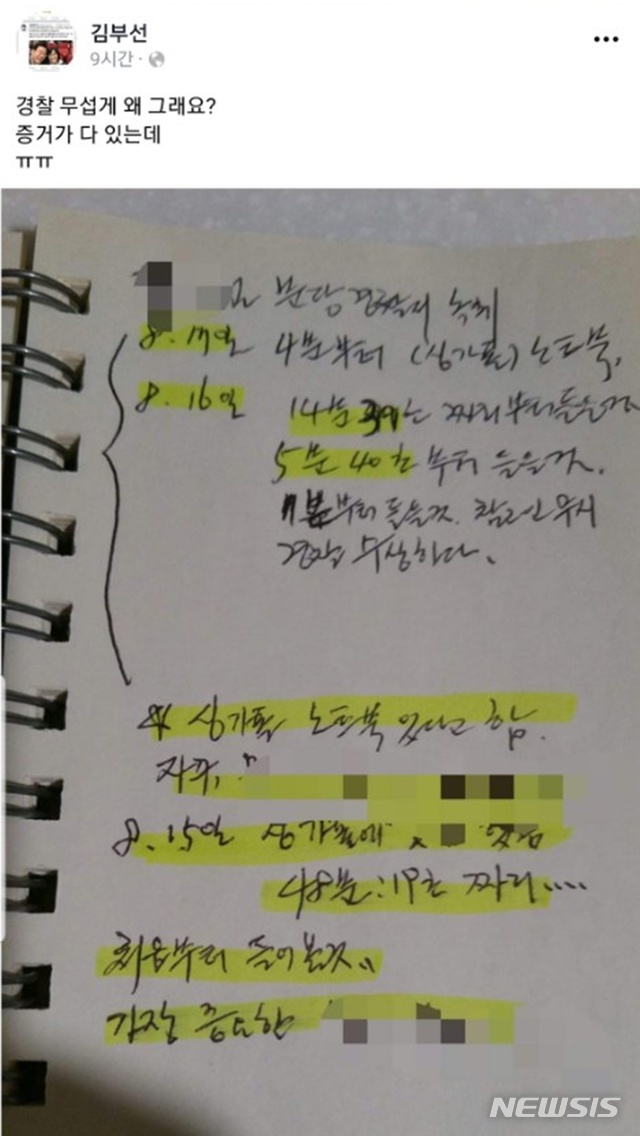 김부선
9시간 ·
경찰 무섭게 왜 그래요?
증거가 다 있는데
ㅠㅠ
분당경찰의 녹취
8. 17일 4분부터 (싱가폴) 노트북,
8. 16일 14분 39는 짜리부터 들을것
5분 40초부터 들을것.
11분부터 들을것. 참고인 무시
경찰 수상하다.
싱가폴 노트북 있다고 함.
자꾸,
8. 15일 싱가폴에 있음
48분:19초 짜리....
처음부터 들어볼것,,
가장 중요한
NEWSIS